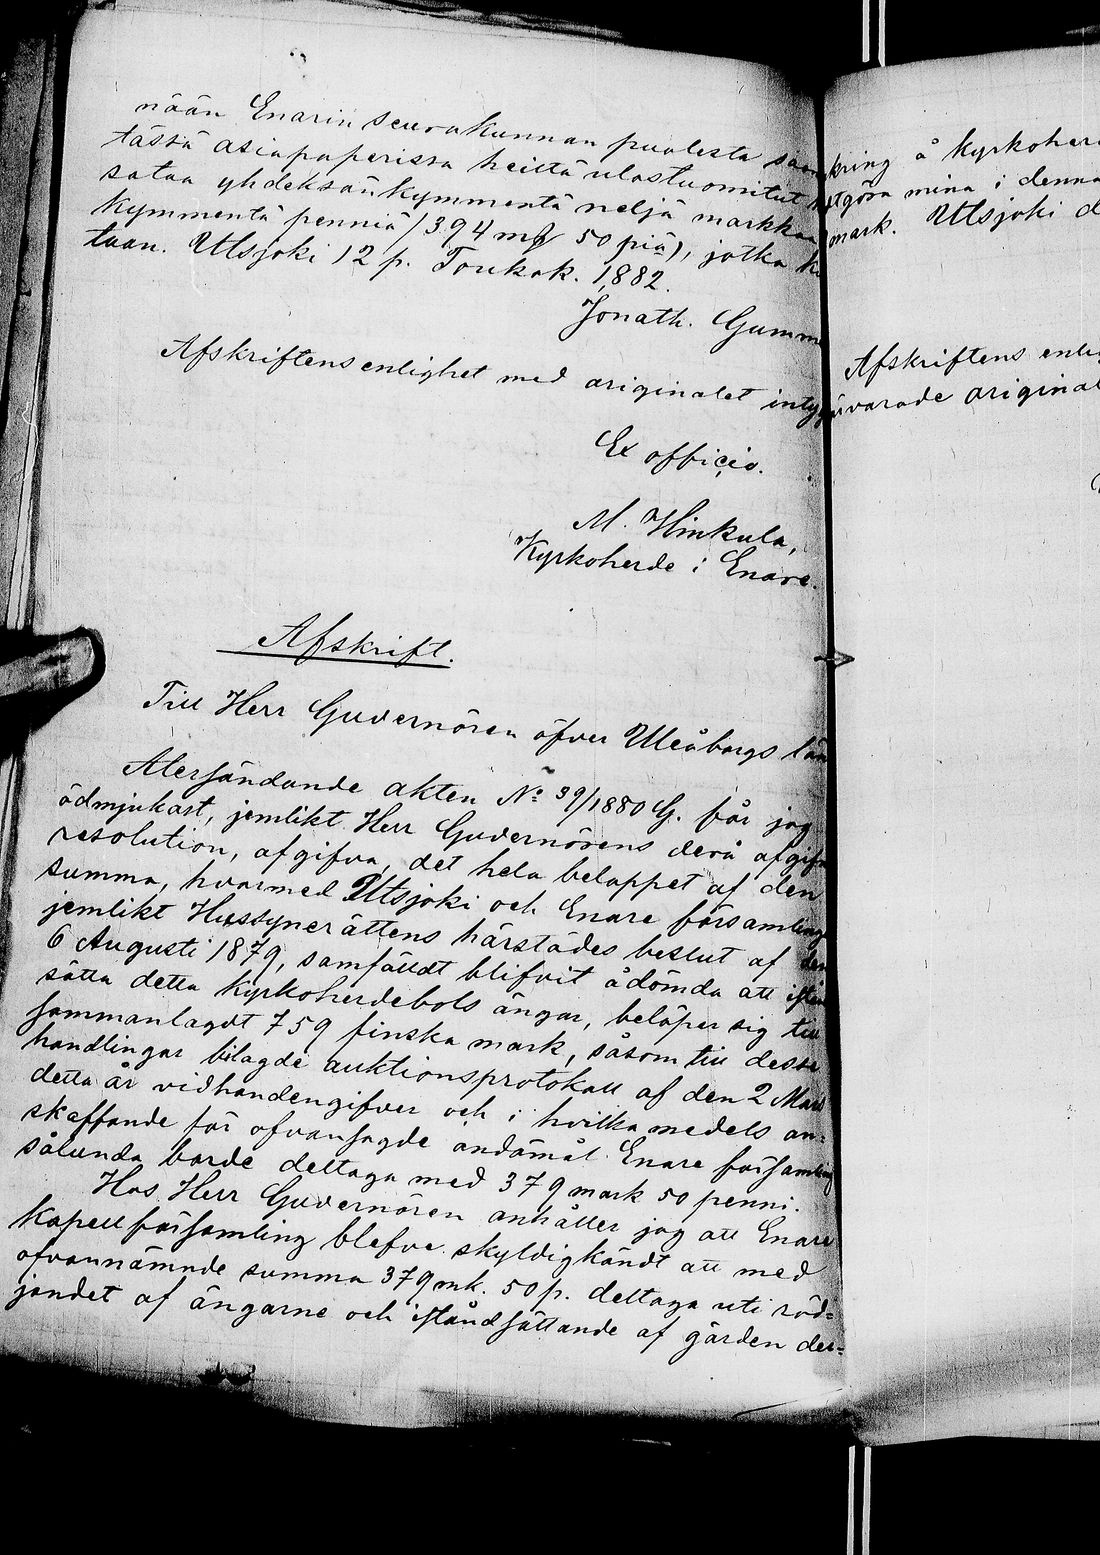 nään Enarin seurakunnan puolesta
tässä asiapaperissa heiltä ulostuomitut
sataa yhdeksänkymmentä neljä markkaa
kymmentä penniä (394 mk 50 piä), jotka
taan. Utsjoki 12 p. Toukok. 1882.
Jonath. Gumm
Afskriftens enlighet med originalet inty
Ex officio.
M. Hinkula,
Kyrkoherde i Enare.
Afskrift.
Till Herr Guvernören öfver Uleåborgs län
Återsändande akten No 39/1880 G. får jag
ödmjukast, jemlikt Herr Guvernörens derå afgifn
resolution, afgifva, det hela beloppet af den
summa, hvarmed Utsjoki och Enare församling
jemlikt Hussynerättens härstädes beslut af den
6 Augusti 1879, samfäldt blifvit ådömda att istånd
sätta detta kyrkoherdebols ängar, belöper sig till
sammanlagdt 759 finska mark, såsom till dessa
handlingar bilagde auktionsprotokoll af den 2 Mars
detta år vidhandengifver och i hvilka medels an-
skaffande för ofvansagde ändamål Enare församling
sålunda borde deltaga med 379 mark 50 penni.
Hos Herr Guvernören anhåller jag att Enare
Kapellförsamling blefve skyldigkändt att med
ofvannämnde summa 379 mk. 50 p. deltaga uti röd-
jandet af ängarne och iståndsättande af gärden der-
kring å kyrkoher
göra mina i denna
mark. Utsjoki d
Afskriftens enli
varade original